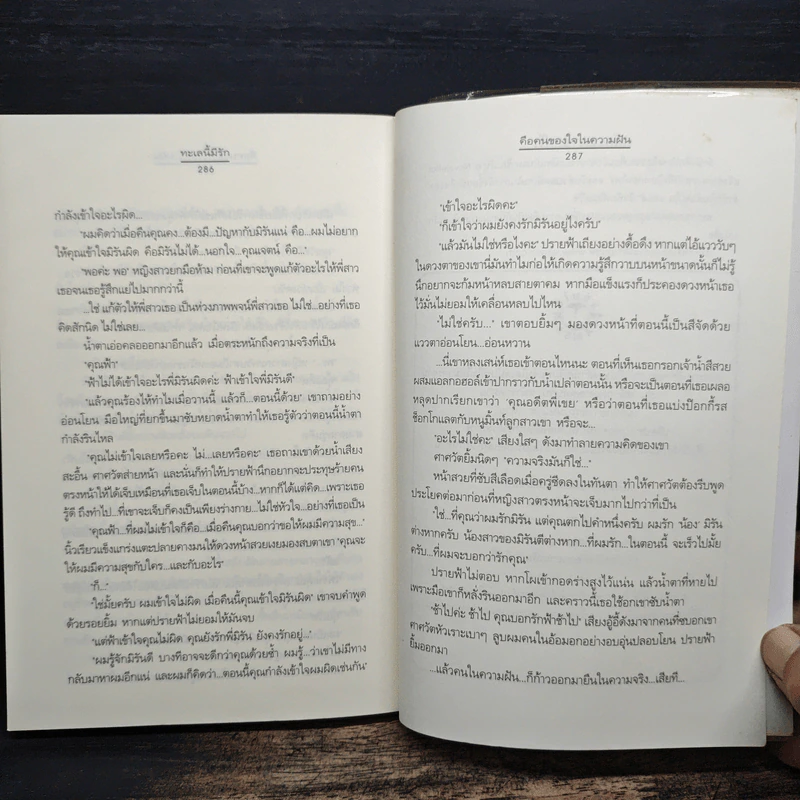 ทะเลนี้มีรัก
286
กำลังเข้าใจอะไรผิด...
"ผมคิดว่าเมื่อคืนคุณคง...ต้องมี...ปัญหากับมิรันแน่ คือ...ผมไม่อยาก
ให้คุณเข้าใจมิรันผิด คือมิรันไม่ได้...นอกใจ...คุณเจตน์ คือ..."
"พอค่ะ พอ" หญิงสาวยกมือห้าม ก่อนที่เขาจะพูดแก้ตัวอะไรให้พี่สาว
เธอจนเธอรู้สึกแย่ไปมากกว่านี้
...ใช่ แก้ตัวให้พี่สาวเธอ เป็นห่วงภาพพจน์พี่สาวเธอ ไม่ใช่...อย่างที่เธอ
คิดสักนิด ไม่ใช่เลย...
น้ำตาเอ่อคลอออกมาอีกแล้ว เมื่อตระหนักถึงความจริงที่เป็น
"คุณฟ้า"
"ฟ้าไม่ได้เข้าใจอะไรพี่มิรันผิดค่ะ ฟ้าเข้าใจพี่มิรันดี"
"แล้วคุณร้องไห้ทำไมเมื่อวานนี้ แล้วก็...ตอนนี้ด้วย" เขาถามอย่าง
อ่อนโยน มือใหญ่ที่ยกขึ้นมาซับหยาดน้ำตาทำให้เธอรู้ตัวว่าตอนนี้น้ำตา
กำลังรินไหล
"คุณไม่เข้าใจเลยหรือคะ ไม่...เลยหรือคะ" เธอถามเขาด้วยน้ำเสียง
สะอื้น ศาศวัตส่ายหน้า และนั่นก็ทำให้ปรายฟ้านึกอยากจะประทุษร้ายคน
ตรงหน้าให้ได้เจ็บเหมือนที่เธอเจ็บในตอนนี้บ้าง...หากก็ได้แต่คิด...เพราะเธอ
รู้ดี ถึงทำไป...ที่เขาจะเจ็บก็คงเป็นเพียงร่างกาย...ไม่ใช่หัวใจ...อย่างที่เธอเป็น
"คุณฟ้า...ที่ผมไม่เข้าใจก็คือ...เมื่อคืนคุณบอกว่าขอให้ผมมีความสุข..."
นิ้วเรียวแข็งแกร่งแตะปลายคางมนให้ดวงหน้าสวยเงยมองสบตาเขา "คุณจะ
ให้ผมมีความสุขกับใคร...และกับอะไร"
"ก็..."
"ใช่มั้ยครับ ผมเข้าใจไม่ผิด เมื่อคืนนี้คุณเข้าใจมิรันผิด" เขาจบคำพูด
ด้วยรอยยิ้ม หากปรายฟ้าไม่ยอมให้มันจบ
"แต่ฟ้าเข้าใจคุณไม่ผิด คุณยังรักพี่มิรัน ยังคงรักอยู่..."
"ผมรู้จักมิรันดี บางทีอาจจะดีกว่าคุณด้วยซ้ำ ผมรู้...ว่าเขาไม่มีทาง
กลับมาหาผมอีกแน่ และผมก็คิดว่า...ตอนนี้คุณกำลังเข้าใจผมผิดเช่นกัน"
คือคนของใจในความฝัน
287
"เข้าใจอะไรผิดคะ"
"ก็เข้าใจว่าผมยังคงรักมิรันอยู่ไงครับ"
"แล้วมันไม่ใช่หรือไงคะ" ปรายฟ้าเถียงอย่างดื้อดึง หากแต่ไอ้แวววับๆ
ในดวงตาของเขานี่มันทำไมก่อให้เกิดความรู้สึกวาบบนหน้าขนาดนั้นก็ไม่รู้
นึกอยากจะก้มหน้าหลบสายตาคม หากมือแข็งแรงก็ประคองดวงหน้าเธอ
ไว้มั่นไม่ยอมให้เคลื่อนหลบไปไหน
"ไม่ใช่ครับ..." เขาตอบยิ้มๆ มองดวงหน้าที่ตอนนี้เป็นสีจัดด้วย
แววตาอ่อนโยน...อ่อนหวาน
...นี่เขาหลงเสน่ห์เธอเข้าตอนไหนนะ ตอนที่เห็นเธอกรอกเจ้าน้ำสีสวย
ผสมแอลกอฮอล์เข้าปากราวกับน้ำเปล่าตอนนั้น หรือจะเป็นตอนที่เธอเผลอ
หลุดปากเรียกเขาว่า 'คุณอดีตพี่เขย' หรือว่าตอนที่เธอแบ่งป๊อกกี้รส
ช็อกโกแลตกับหนูมิ้นท์ลูกสาวเขา หรือจะ...
"อะไรไม่ใช่คะ" เสียงใสๆ ดังมาทำลายความคิดของเขา
ศาศวัตยิ้มนิดๆ "ความจริงมันก็ใช่..."
หน้าสวยที่ซับสีเลือดเมื่อครู่ซีดลงในทันตา ทำให้ศาศวัตต้องรีบพูด
ประโยคต่อมาก่อนที่หญิงสาวตรงหน้าจะเจ็บมากไปกว่าที่เป็น
"ใช่...ที่คุณว่าผมรักมิรัน แต่คุณตกไปคำหนึ่งครับ ผมรัก 'น้อง' มิรัน
ต่างหากครับ น้องสาวของมิรันดีต่างหาก...ที่ผมรัก...ในตอนนี้ จะเร็วไปมั้ย
ครับ...ที่ผมจะบอกว่ารักคุณ"
ปรายฟ้าไม่ตอบ หากโผเข้ากอดร่างสูงไว้แน่น แล้วน้ำตาที่หายไป
เพราะมือเขาก็หลั่งรินออกมาอีก และคราวนี้เธอใช้อกเขาซับน้ำตา
"ช้าไปค่ะ ช้าไป คุณบอกรักฟ้าช้าไป" เสียงอู้อี้ดังมาจากคนที่ซบอกเขา
ศาศวัตหัวเราะเบาๆ ลูบผมคนในอ้อมอกอย่างอบอุ่นปลอบโยน ปรายฟ้า
ยิ้มออกมา
...แล้วคนในความฝัน...ก็ก้าวออกมายืนในความจริง...เสียที...